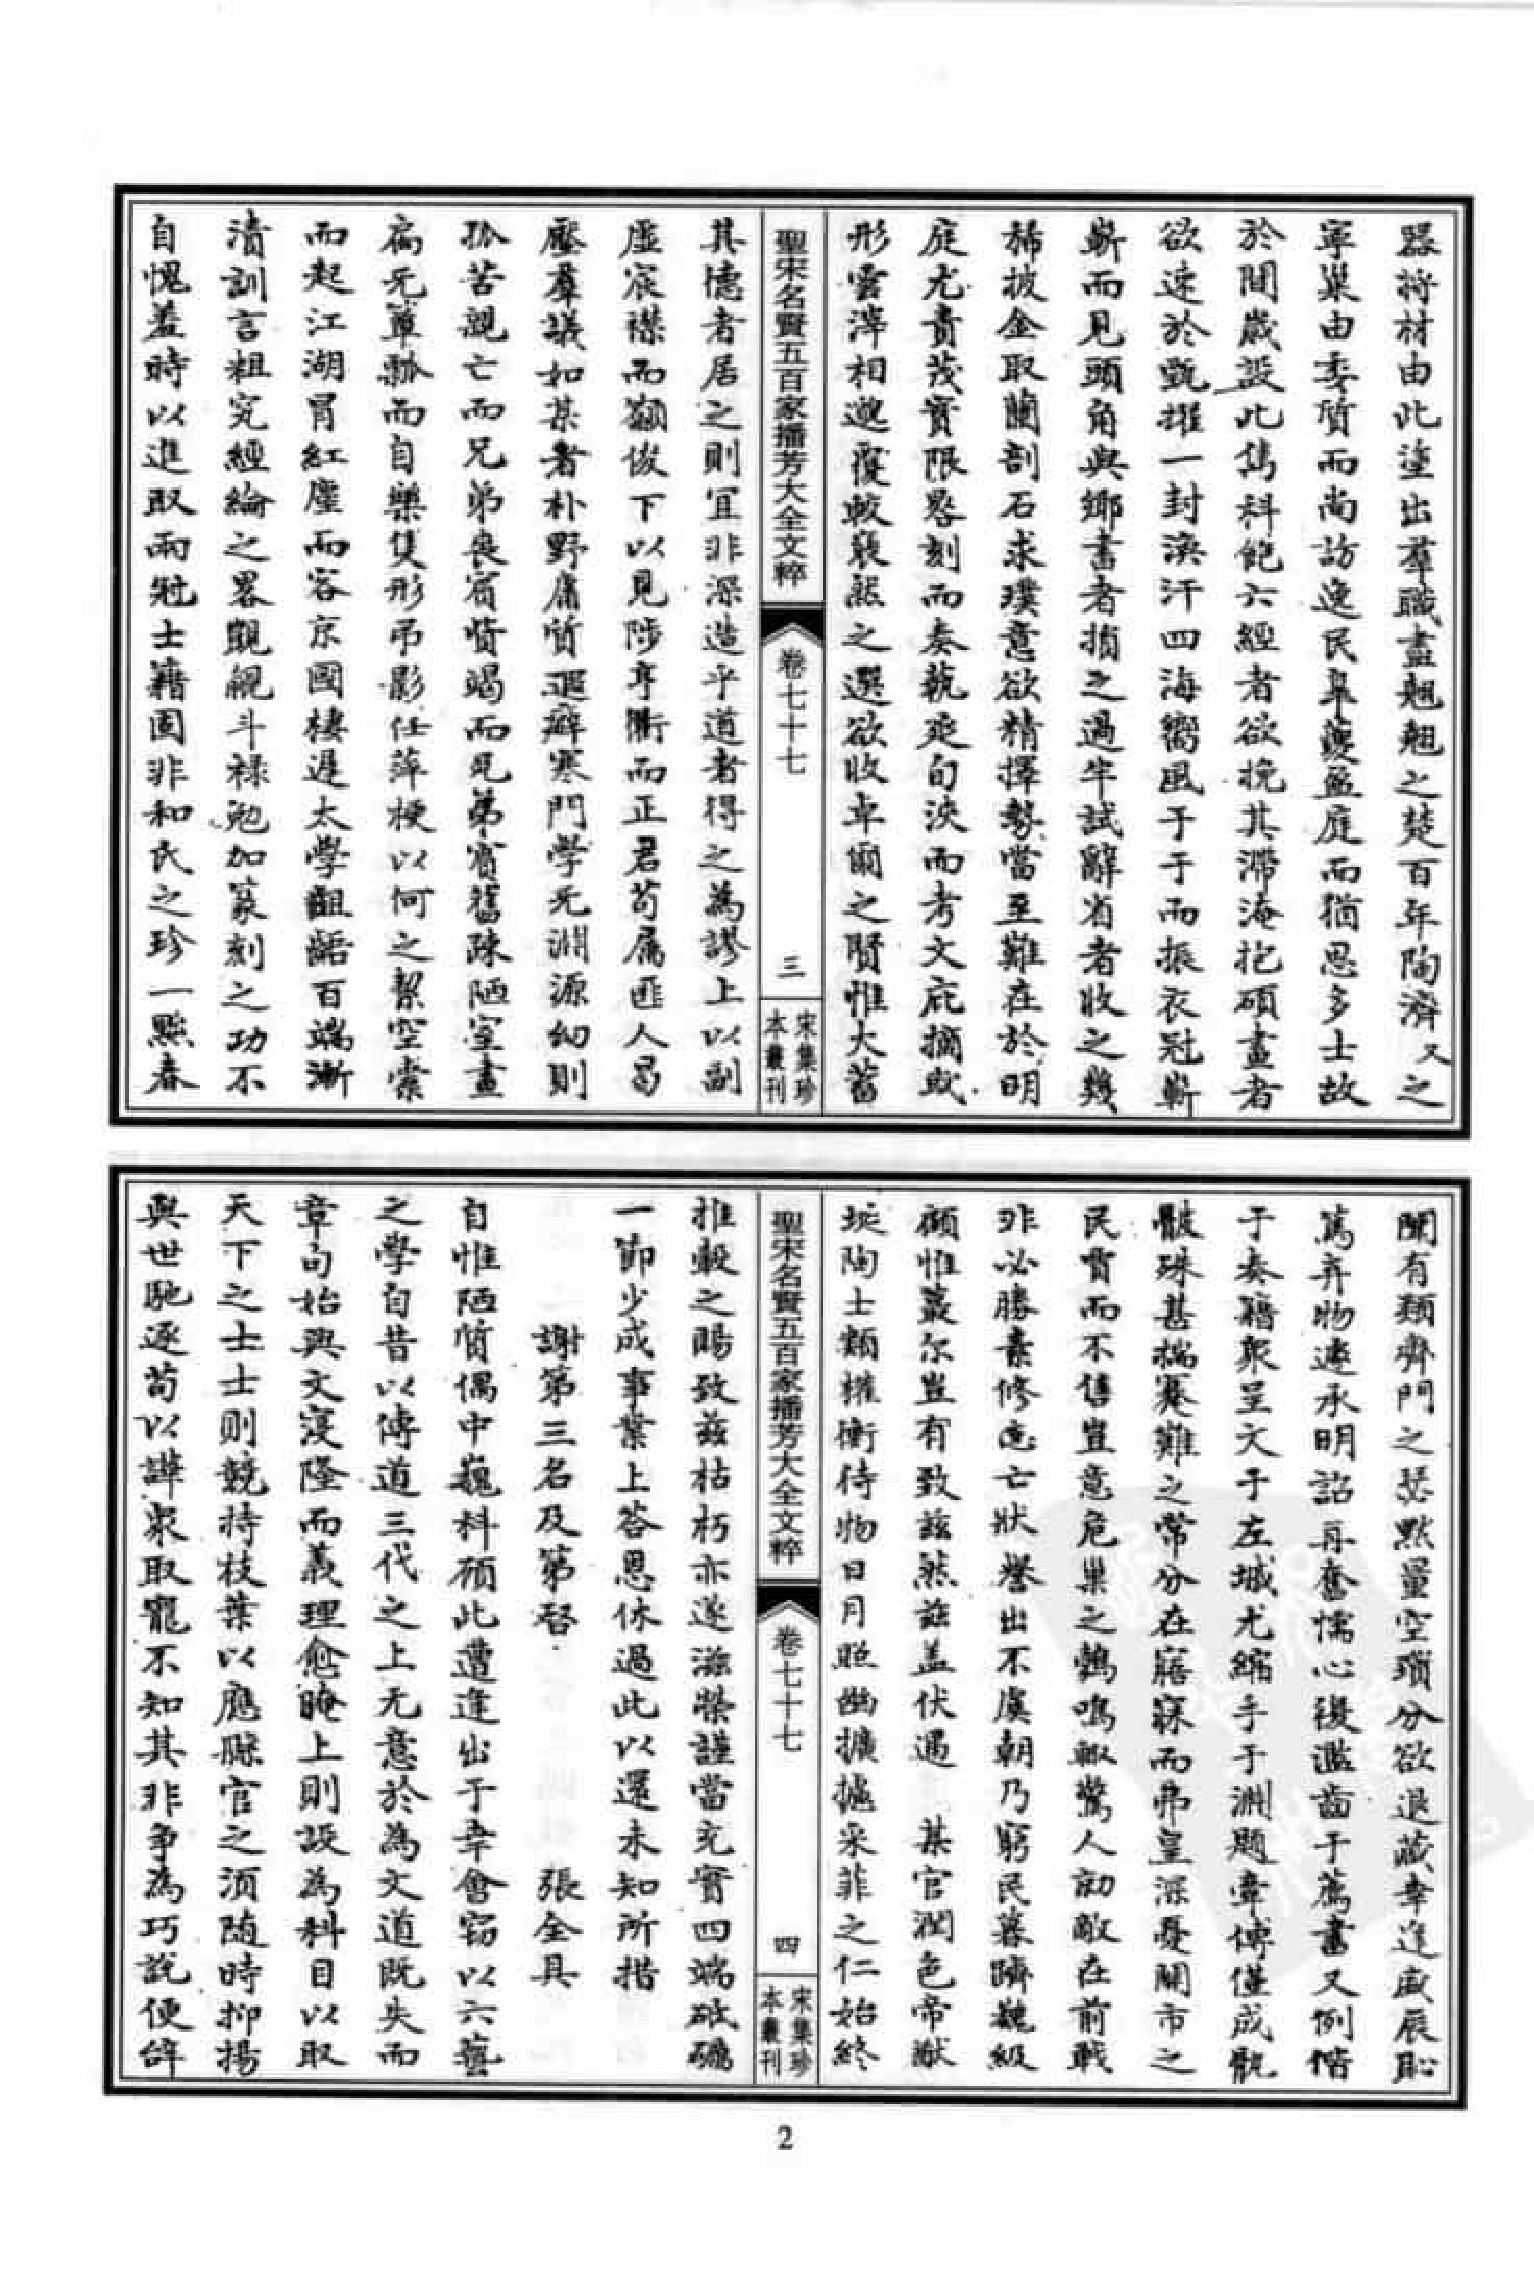 器將材由此塗出羣職盡翹翹之楚百年陶濟又之
寧巢由委質而尚訪逸民皐夔盈庭而猶思多士故
於間歲設此雋科飽六經者欲挽其滯淹抱碩畫者
欲速於甄擢一封渙汗四海嚮風于于而振衣冠嶄
嶄而見頭角與鄉書者損之過半試辭省者收之幾
稀披金取蘭剖石求璞意欲精擇勢當至難在於明
庭尤貴茂實限晷刻而奏藝更旬浹而考文庇摘貺
形雲渾相邀霞較裒然之選欲收卓爾之賢惟大蓄
其德者居之則宜非深造乎道者得之為謬上以副
虛宸襟而籲俊下以見陟亨衢而正君苟屬匪人曷
壓羣議如某者朴野庸質遐僻寒門學无淵源幼則
孤苦親亡而兄弟喪資貲竭而兄弟賓舊疎陋室晝
扃无簞瓢而自樂隻形弔影任萍梗以何之絜空橐
而起江湖冒紅塵而客京國棲遲太學齟齬百端漸
漬訓言粗究經綸之畧覬覦斗祿勉加篆刻之功不
自愧羞時以進取兩冠士籍固非和氏之珍一點春
聖宋名賢五百家播芳大全文粹
卷七十七
三
宋集珍本叢刊
聞有類齊門之瑟默量空瑣分欲退藏幸進盛辰恥
為弃物遽承明詔再奮懦心復濫齒于薦書又例偕
于奏籍聚呈文于左城尤縮手于淵題牽傅僅成骫
骸殊甚揣蹇難之常分在寤寐而弗皇深憂關市之
民賈而不售豈意危巢之鶴鳴輙驚人勍敵在前戰
非必勝素修迨亡狀譽出不虞朝乃窮民暮隮巍級
顧惟蕞尔豈有致茲然茲盖伏遇　某官潤色帝猷
埏陶士類權衡待物日月照幽擴摭采菲之仁始終
推轂之賜致茲枯朽亦遂滋榮謹當充實四端砥礪
一節少成事業上荅恩休過此以還未知所措
謝第三名及第啓　張全具
自惟陋質偶中巍科碩此遭逢出于幸會竊以六藝
之學自昔以傳道三代之上无意於為文道既失而
章句始興文寖隆而義理愈晻上則設為科目以取
天下之士士則競持枝葉以應縣官之須隨時抑揚
與世馳逐苟以譁衆取寵不知其非爭為巧說便辭
聖宋名賢五百家播芳大全文粹
卷七十七
四
宋集珍本叢刊
2